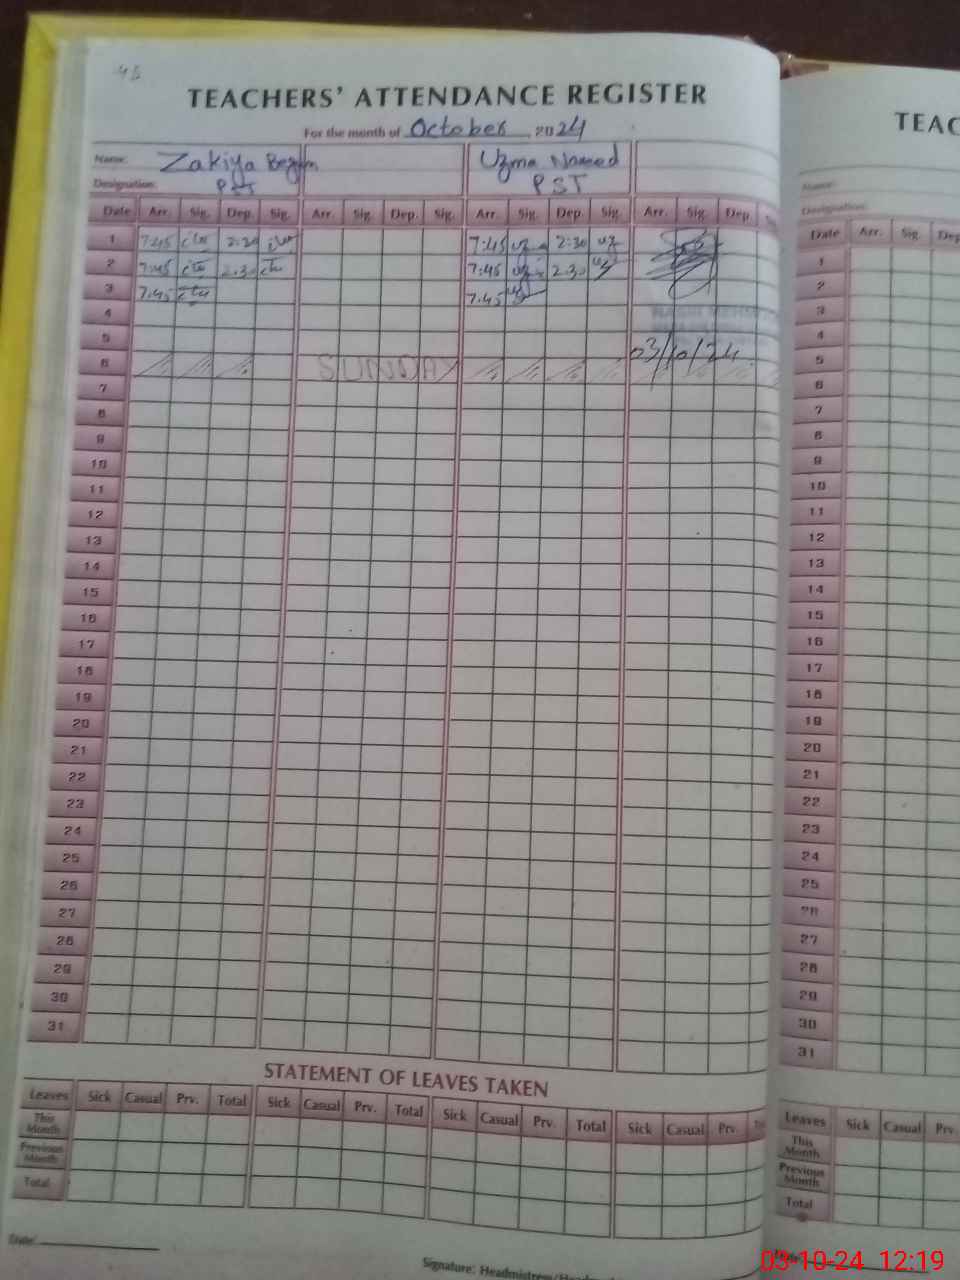 45
TEACHERS' ATTENDANCE REGISTER
For the month of October, 2024
Name: Zakiya Begum Uzma Naveed
Designation: PST PST
Date Arr. Sig. Dep. Sig. Arr. Sig. Dep. Sig. Arr. Sig. Dep. Sig. Arr. Sig. Dep.
1 7:45 2:30 7:45 uz 2:30 uz
2 7:45 2:30 7:45 uz 2:30 uz
3 7:45 7:45 uz
4
5 03/10/24
6 SUNDAY
7
8
9
10
11
12
13
14
15
16
17
18
19
20
21
22
23
24
25
26
27
28
29
30
31
STATEMENT OF LEAVES TAKEN
Leaves Sick Casual Prv. Total Sick Casual Prv. Total Sick Casual Prv. Total Sick Casual Prv.
This Month
Previous Month
Total
Date:
Signature: Headmistress/
TEAC
Name:
Designation:
Date Arr. Sig. Dep
1
2
3
4
5
6
7
8
9
10
11
12
13
14
15
16
17
18
19
20
21
22
23
24
25
26
27
28
29
30
31
Leaves Sick Casual Prv.
This Month
Previous Month
Total
03-10-24 12:19